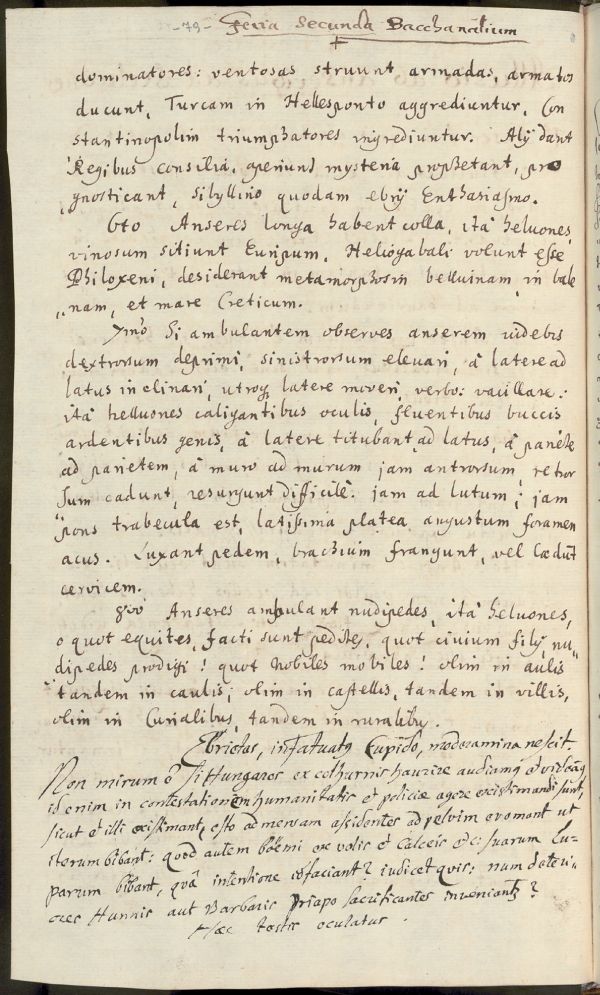 -79- Feria Secunda Bacchanalium
dominatores: ventosas struunt armadas, armatos
ducunt, Turcam in Hellesponto aggrediuntur, Con
stantinopolim triumphatores ingrediuntur. Alij dant
Regibus consilia, aperiunt mysteria prophetant, pro
gnosticant, sibyllino quodam ebrij Enthusiasmo.
6to Anseres longa habent colla, itá heluones,
vinosum sitiunt Euripum, Heliogabali volunt esse
Philoxeni, desiderant metamorphosin belluinam, in bale
nam, et mare Creticum.
7mo Si ambulantem observes anserem videbis
dextrorsum deprimi, sinistrorsum elevari, á latere ad
latus inclinari, utroq latere moveri, verbo: vacillare:
itá helluones caligantibus oculis, fluentibus buccis
ardentibus genis, á latere titubant ad latus, á pariete
ad parietem, á muro ad murum jam antrorsum, retror
sum cadunt, resurgunt difficilé. jam ad lutum; jam
pons trabecula est, latissima platea angustum foramen
acus. Luxant pedem, brachium frangunt, vel laedut
cervicem.
8vo Anseres ambulant nudipedes, itá heluones,
o quot equites, facti sunt pedites, quot civium filij nu
dipedes prodigi! quot nobiles mobiles! olim in aulis
tandem in caulis; olim in castellis, tandem in villis,
olim in Curialibus, tandem in ruralibus.
Ebrietas, infatuatq Cupido, moderamina nescit.
Non mirum e Si Hungaros ex cothurnis haurire audiamq et videaq
id enim in contestationem humanitatis et policiae agere existimandi sunt,
sicut et illi existimant, esto ad mensam assidentes ad pelvim evomant ut
iterum bibant: quod autem Boëmi ex calceis etc: suarum Lu-
parum bibant, quâ intentione id faciant? iudicet quis: num deteri-
ores Hunnis aut Barbaris Priapo sacrificantes inveniantq?
Haec testis oculatus.